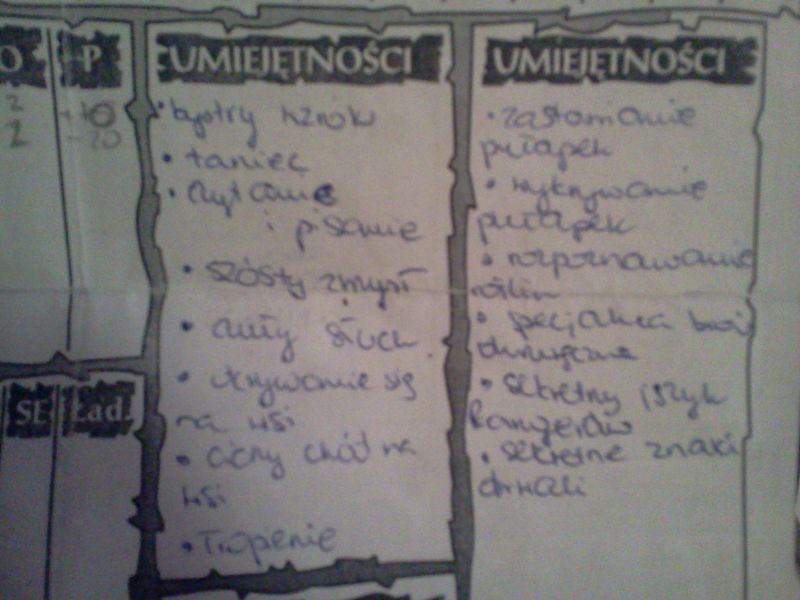 O P
2
-10
2
-20
SE Ład.
UMIEJĘTNOŚCI
• bystry wzrok
• taniec
• czytanie
i pisanie
• szósty zmysł
• czuły słuch
• ukrywanie się
na wsi
• cichy chód na
wsi
• Tropienie
UMIEJĘTNOŚCI
• zastawianie
pułapek
• wykrywanie
pułapek
• rozpoznawanie
roślin
• specjalna broń
• sekretny język
Rangerów
• sekretne znaki
drwali